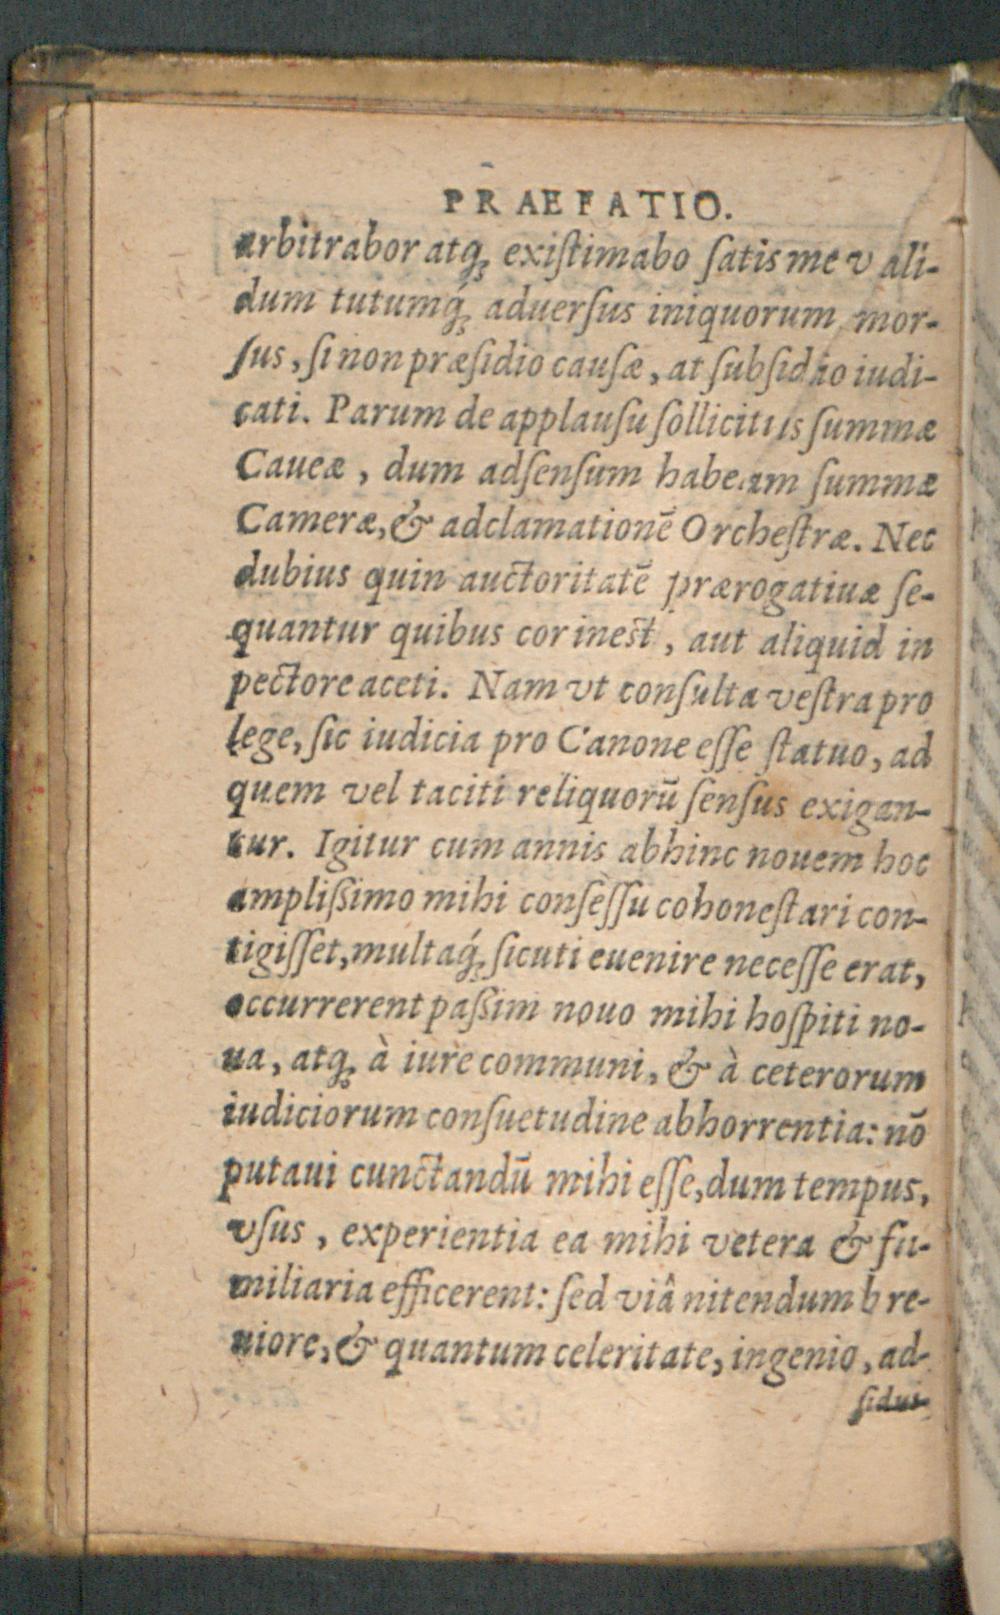 PRAEFATIO.
arbitrabor atq; exiſtimabo ſatis me vali-
dum tutumq́; aduerſus iniquorum mor-
ſus, ſi non præſidio cauſæ, at ſubſidio iudi-
cati. Parum de applauſu ſollicitus ſummæ
Caueæ, dum adſenſum habeam ſummæ
Cameræ, & adclamationē Orcheſtræ. Nec
dubius quin auctoritatē prærogatiuæ ſe-
quantur quibus cor ineſt, aut aliquid in
pectore aceti. Nam vt conſulta veſtra pro
lege, ſic iudicia pro Canone eſſe ſtatuo, ad
quem vel taciti reliquorū ſenſus exigan-
tur. Igitur cum annis abhinc nouem hoc
ampliſsimo mihi conſeſſu cohoneſtari con-
tigiſſet, multaq́; ſicuti euenire neceſſe erat,
occurrerent paſsim nouo mihi hoſpiti no-
ua, atq; à iure communi, & à ceterorum
iudiciorum conſuetudine abhorrentia: nō
putaui cunctandū mihi eſſe, dum tempus,
vſus, experientia ea mihi vetera & fa-
miliaria efficerent: ſed viâ nitendum bre-
uiore, & quantum celeritate, ingenio, ad-
ſidui-